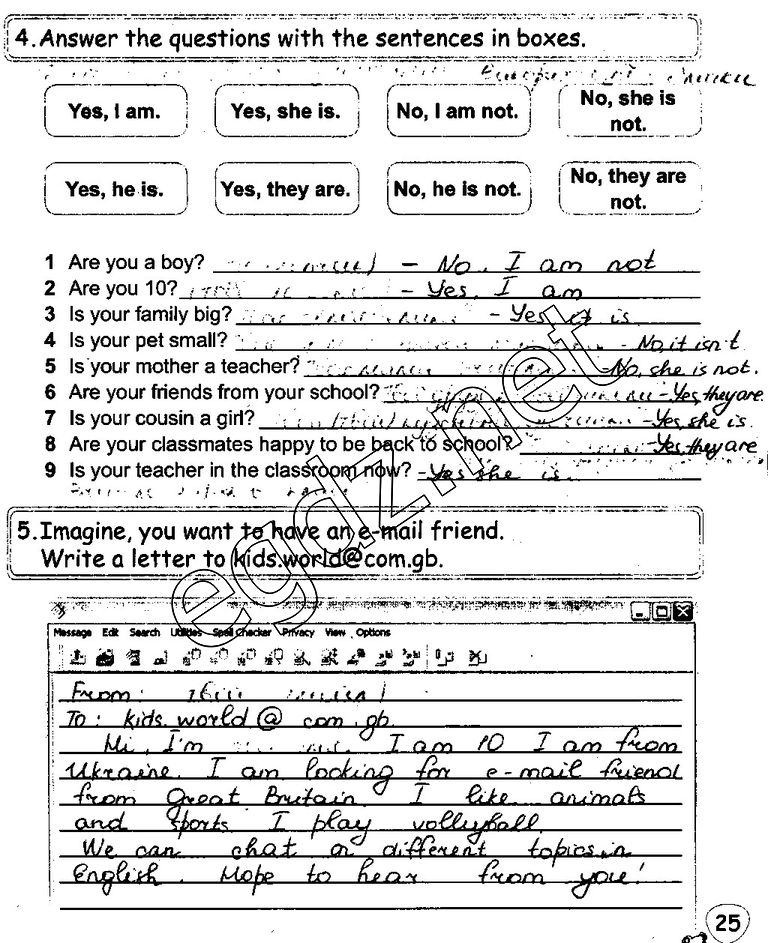 4.Answer the questions with the sentences in boxes.
Yes, I am.
Yes, she is.
No, I am not.
No, she is not.
Yes, he is.
Yes, they are.
No, he is not.
No, they are not.
1 Are you a boy? – No, I am not
2 Are you 10? – Yes, I am
3 Is your family big? – Yes, it is
4 Is your pet small? – No, it isn't
5 Is your mother a teacher? – No, she is not.
6 Are your friends from your school? – Yes, they are.
7 Is your cousin a girl? – Yes, she is.
8 Are your classmates happy to be back to school? – Yes, they are
9 Is your teacher in the classroom now? – Yes she is
5.Imagine, you want to have an e-mail friend.
Write a letter to kids.world@com.gb.
egdz.net
Message Edit Search Utilities Spell Checker Privacy View Options
From:
To: kids.world@com.gb
Hi, I'm I am 10 I am from
Ukraine. I am looking for e-mail friend
from Great Britain I like animals
and sports I play vollyball.
We can chat on different topics in
English. Hope to hear from you!
25